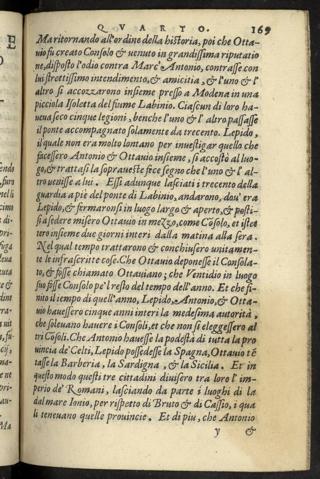 QVARTO. 169
Ma ritornando all'ordine della historia, poi che Otta-
uio fu creato Consolo & uenuto in grandissima riputatio
ne, disposto l'odio contra Marc'Antonio, contrasse con
lui strettissimo intendimento, & amicitia, & l'uno & l'
altro si accozzarono insieme presso a Modena in una
picciola Isoletta del fiume Labinio. Ciascun di loro ha-
ueua seco cinque legioni, benche l'uno & l'altro passasse
il ponte accompagnato solamente da trecento. Lepido,
il quale non era molto lontano per inuestigar quello che
facessero Antonio & Ottauio insieme, si accostò al luo-
go, & tratta si la soprauesta fece segno che l'uno & l'al-
tro uenisse a lui. Essi adunque lasciati i trecento della
guardia a piè del ponte di Labinio, andarono, dou'era
Lepido, & fermaronsi in luogo largo & aperto, & posti-
si a sedere misero Ottauio in mezzo, come Cõsolo, et iste
tero insieme due giorni interi dalla matina alla sera.
Nel qual tempo trattarono & conchiusero unitamen-
te le infrascritte cose. Che Ottauio deponesse il Consola-
to, & fosse chiamato Ottauiano; che Ventidio in luogo
suo fosse Consolo pe'l resto del tempo dell'anno. Et che fi-
nito il tempo di quell'anno, Lepido, Antonio, & Otta-
uio hauessero cinque anni interi la medesima autorità,
che soleuano hauere i Consoli, et che non si eleggessero al
tri Cõsoli. Che Antonio hauesse la podestà di tutta la pro
uincia de' Celti, Lepido possedesse la Spagna, Ottauio tē
tasse la Barberia, la Sardigna, & la Sicilia. Et in
questo modo questi tre cittadini diuisero tra loro l'im-
perio de' Romani, lasciando da parte i luoghi di la
dal mare Ionio, per rispetto di Bruto & di Cassio, i qua
li teneuano quelle prouincie. Et di piu, che Antonio
y &